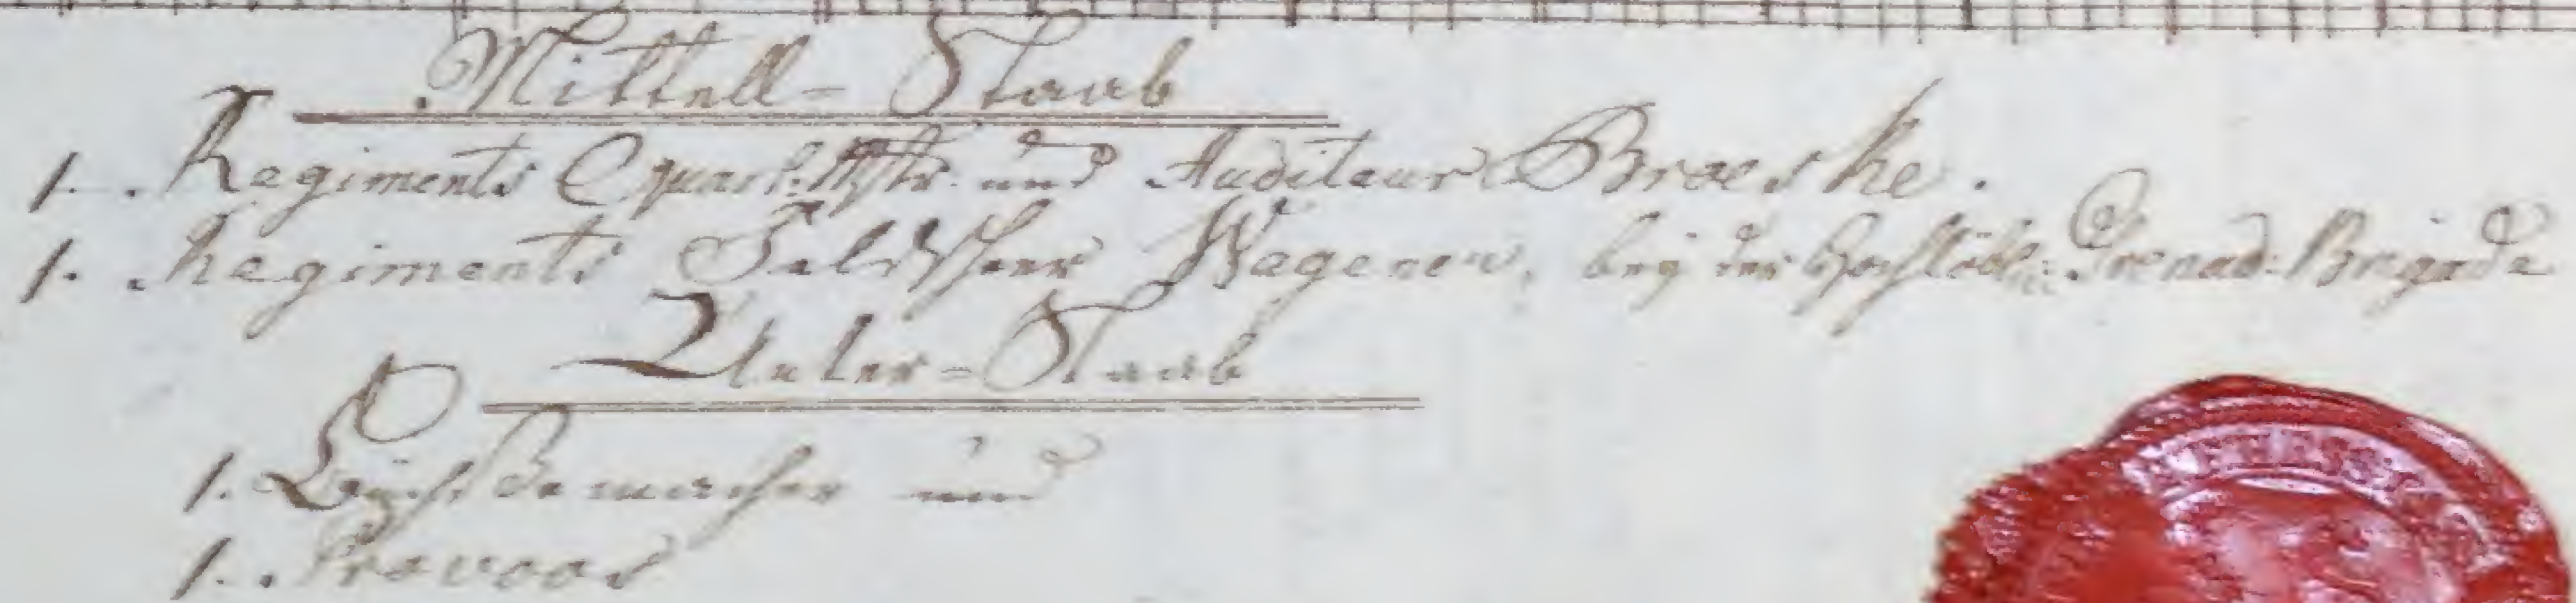 Mittell-Staab
1. Regiments Quart: Mstr. und Auditeur Broeske.
1. Regiments Feldscher Wagener, bey der Hochlöbl: Grenad: Brigade
Unter-Staab
1. Büchsenmacher und
1. Provoos